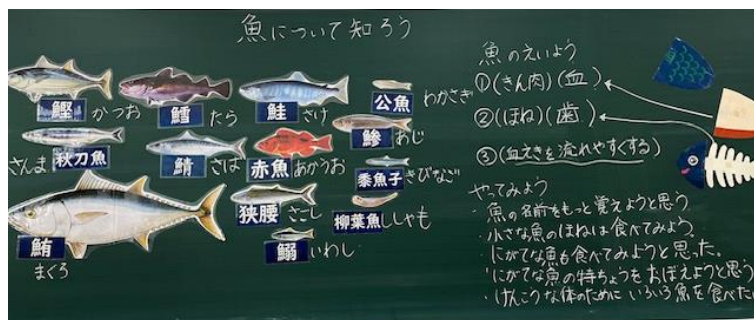 魚について知ろう
鰹 かつお
鱈 たら
鮭 さけ
公魚 わかさぎ
さんま 秋刀魚
鯖 さば
赤魚 あかうお
鯵 あじ
黍魚子 きびなご
鮪
まぐろ
狭腰 さごし
柳葉魚 ししゃも
鰯 いわし
魚のえいよう
①(きん肉)(血)
②(ほね)(歯)
③(血えきを流れやすくする)
やってみよう
・魚の名前をもっと覚えようと思う
・小さな魚のほねは食べてみよう。
・にがてな魚も食べてみようと思った。
・にがてな魚の特ちょうをおぼえようと思う
・けんこうな体のために いろいろ魚を食べた